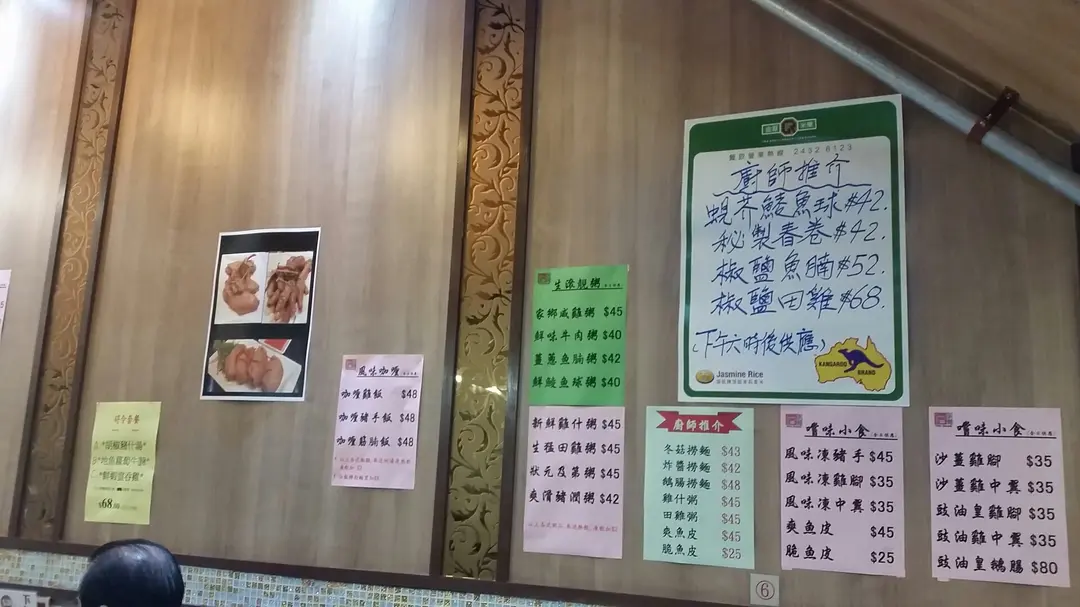 司令套餐
$68
風味咖喱
咖喱雞飯 $48
咖喱豬手飯 $48
咖喱筋腩飯 $48
生滾靚粥
家鄉咸雞粥 $45
鮮味牛肉粥 $40
薑蔥魚腩粥 $42
鮮鯪魚球粥 $40
新鮮雞什粥 $45
生猛田雞粥 $45
狀元及第粥 $45
爽滑豬潤粥 $42
2452 6123
廚師推介
蜆芥鯪魚球 $42.
秘製春卷 $42.
椒鹽魚腩 $52.
椒鹽田雞 $68.
(下午六時後供應)
Jasmine Rice
KANGAROO
BRAND
廚師推介
冬菇撈麵 $43
炸醬撈麵 $42
鵝腸撈麵 $48
雞什粥 $45
田雞粥 $45
爽魚皮 $45
脆魚皮 $25
嚐味小食
風味凍豬手 $45
風味凍雞腳 $35
風味凍中翼 $35
爽魚皮 $45
脆魚皮 $25
嚐味小食
沙薑雞腳 $35
沙薑雞中翼 $35
豉油皇雞腳 $35
豉油雞中翼 $35
豉油皇鵝腸 $80
6